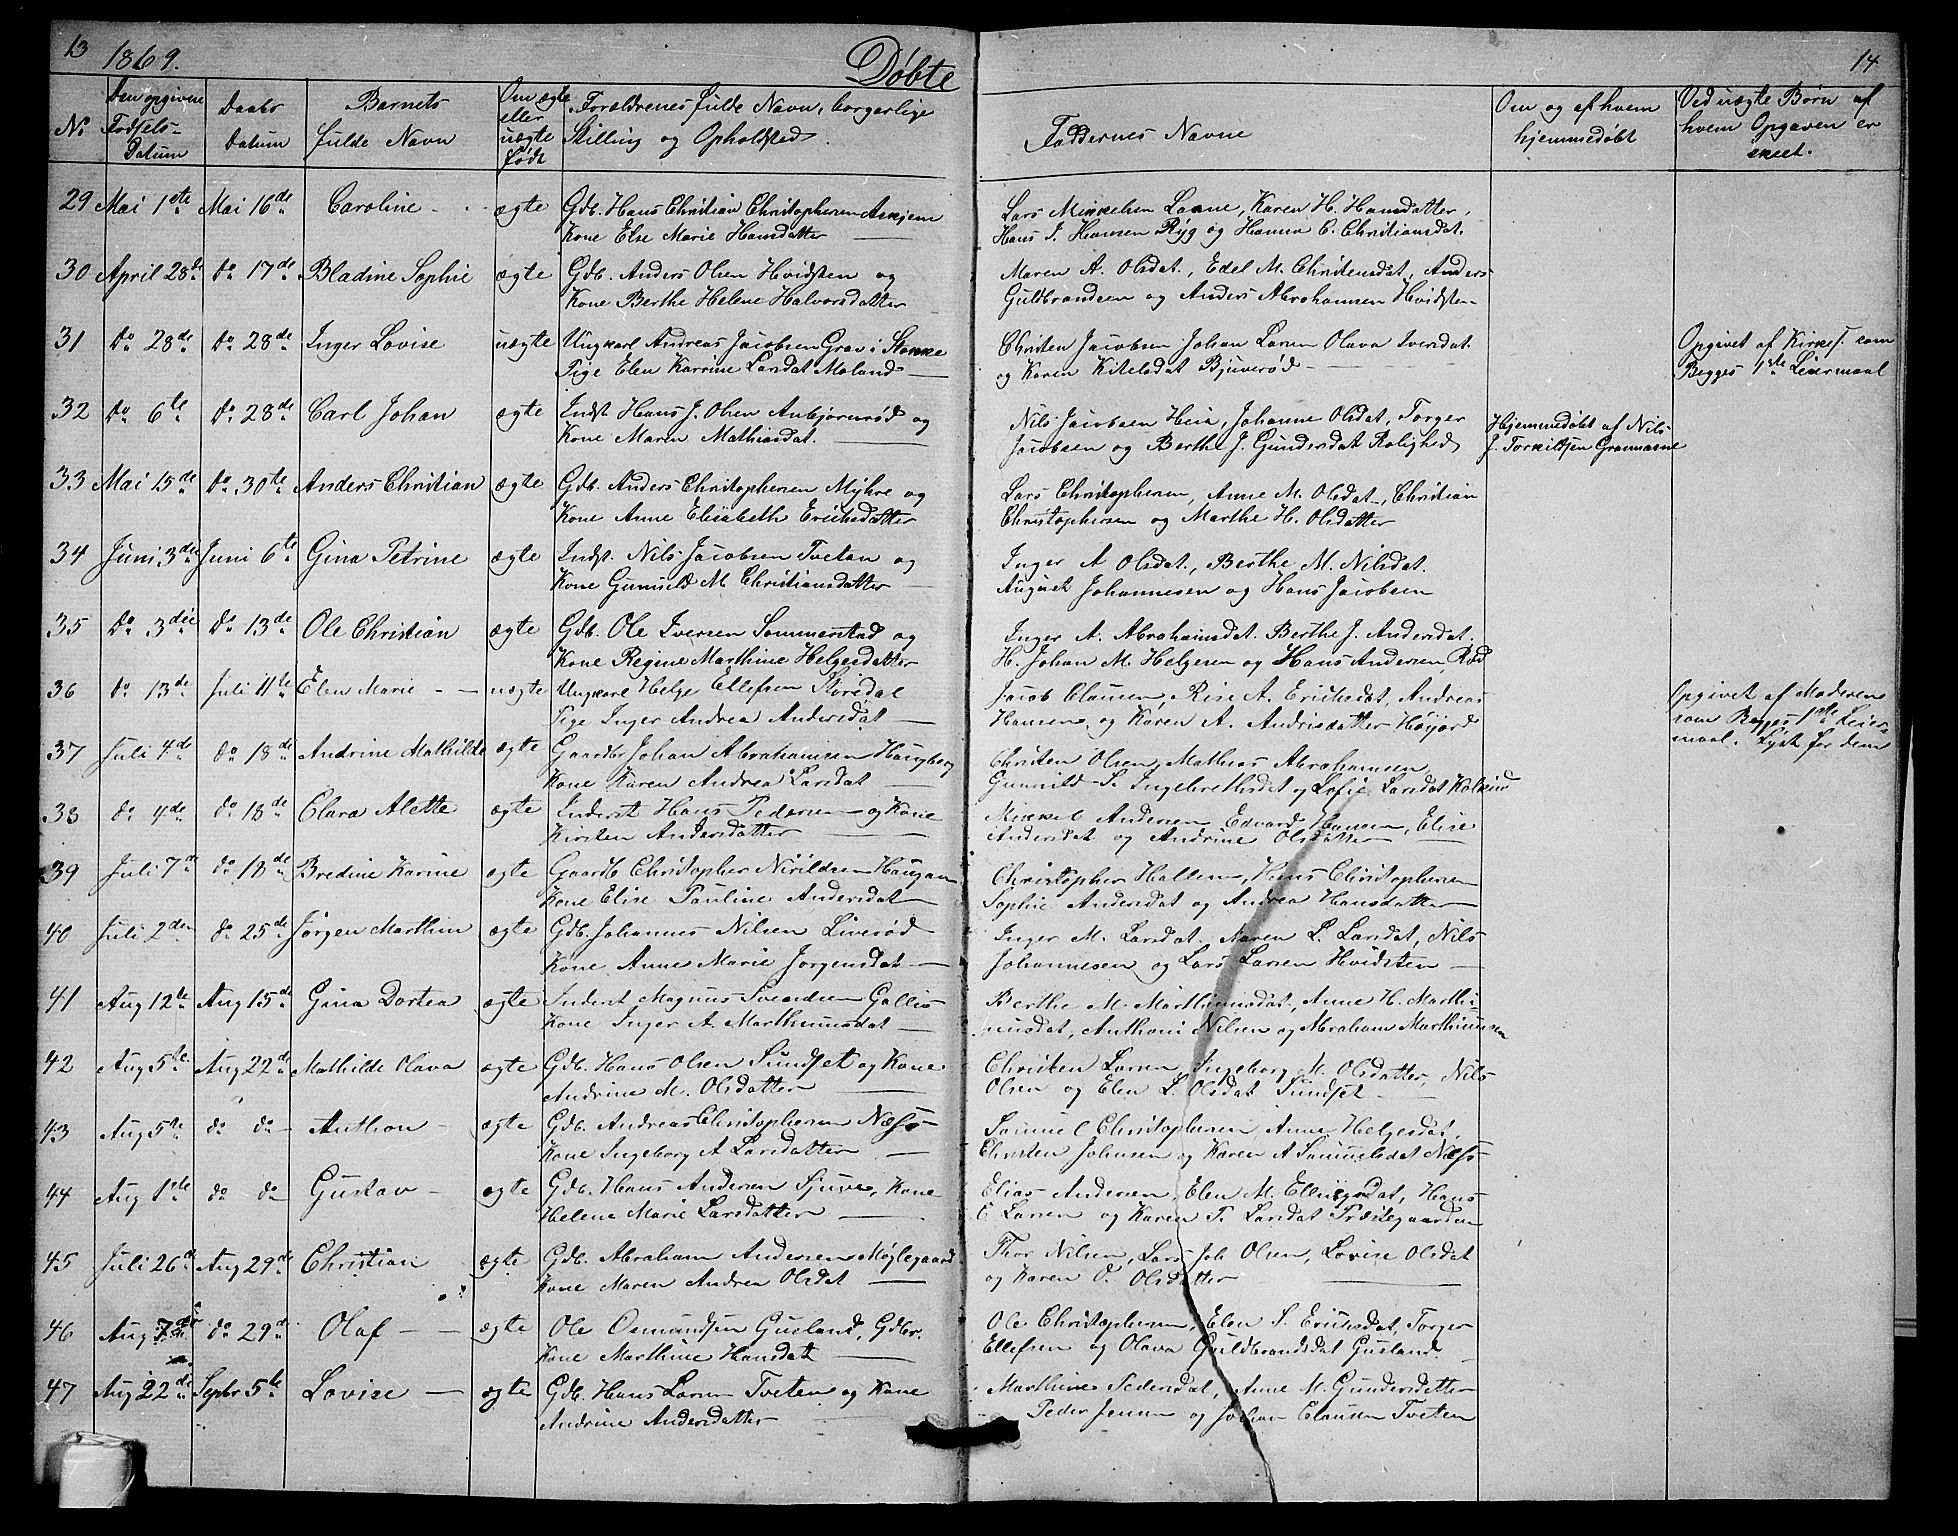 13 1869. Døbte 14
No
Den opgivne Fødsels-Datum
Daabs Datum
Barnets fulde Navn
Om ægte eller uægte født
Forældrenes fulde Navn, borgerlige Stilling og Opholdsted.
Faddernes Navne
Om og af hvem hjemmedøbt
Ved uægte Børn af hvem Opgaven er skeet.
29 Mai 1ste Mai 16de Caroline - ægte Gdb. Hans Christian Christophersen Askjem
Kone Else Marie Hansdatter
Lars Mikkelsen Laane, Karen H. Hansdatter,
Hans J. Hansen Ryg og Hanna C. Christiansdat.
30 April 28de do 17de Bladine Sophie ægte Gdb. Anders Olsen Hvidsten og
Kone Berthe Helene Halvorsdatter
Maren A. Olsdat., Edel M. Christensdat, Anders
Guldbrandsen og Anders Abrahamsen Hvidsten
31 do 28de do 28de Inger Lovise uægte Ungkarl Andreas Jacobsen Grav i Stokke
Pige Elen Karrine Larsdat Moland
Christen Jacobsen Johan Larsen Olava Iversdat
og Karen Kitelsdat Bjuverød
Opgivet af Kirkes. som
Begges 1ste Leiermaal
32 do 6te do 28de Carl Johan ægte Indst Hans J. Olsen Anbjørnrød og
Kone Maren Mathisdat.
Nils Jacobsen Heia, Johanne Olsdat, Torger
Jacobsen og Berthe J. Gundersdat Rolighed
Hjemmedøbt af Nils
J. Torkildsen Granmarne
33 Mai 15de do 30te Anders Christian ægte Gdb. Anders Christophersen Myhre og
Kone Anne Elisabeth Ericksdatter
Lars Christophersen, Anne M. Olsdat, Christian
Christophersen og Marthe H. Olsdatter
34 Juni 3die Juni 6te Gina Petrine ægte Indst. Nils Jacobsen Tvetan og
Kone Gunnild M. Christiansdatter
Inger A Olsdat., Berthe M. Nilsdat.
August Johannesen og Hans Jacobsen
35 do 3die do 13de Ole Christian ægte Gdb. Ole Iversen Sommerstad og
Kone Regine Marthine Helgesdatter
Inger A. Abrahamsdat. Berthe J. Andersdat.
H. Johan M. Helgesen og Hans Andersen Rød
36 do 13de Juli 11te Elen Marie - - uægte Ungkarl Helge Ellefsen Storedal
Pige Inger Andrea Andersdat
Jacob Clausen, Rise A. Ericksdat, Andreas
Hansen og Karen A. Andrisdatter Høijord
Opgivet af Moderen
som Begges 1ste Leier-
maal. Lyst for dem
37 Juli 4de do 18de Andrine Mathilde ægte Gaardbr Johan Abrahamsen Haugberg
Kone Karen Andrea Larsdat
Christen Olsen, Mathias Abrahamsen,
Gunnild S. Ingebrethsdat og Sofie Larsdat
38 do 4de do 18de Clara Alette ægte Inderst Hans Pedersen og Kone
Kirsten Andersdatter
Mikkel Andersen, Edvard Hansen, Elise
Andersdat og Andrine Olsdatter
39 Juli 7de do 18de Bredine Karine ægte Gaardb Christopher Nirildsen Haugan
Kone Elise Pauline Andersdat
Christopher Hallem, Hans Christophersen
Sophie Andersdat og Andrea Hansdatter
40 Juli 2den do 25de Jørgen Marthin ægte Gdb. Johannes Nilsen Liverød
Kone Anne Marie Jørgensdat
Inger M. Larsdat. Maren L. Larsdat, Nils
Johannesen og Lars Larsen Hvidsten
41 Aug 12te Aug 15de Gina Dortea ægte Inderst Magnus Svendsen Gallis
Kone Inger A. Marthinusdat
Berthe M. Marthinusdat, Anne H. Marthi-
nusdat, Anthoni Nilsen og Abraham Marthinussen
42 Aug 5te Aug 22de Mathilde Olava ægte Gdb. Hans Olsen Sundset og Kone
Andrine M. Olsdatter
Christen Larsen, Ingeborg M. Olsdatter, Nils
Olsen og Elen L. Olsdat Sundset
43 Aug 5te do do Anthon - ægte Gdb. Andreas Christophersen Næss
Kone Ingeborg A Larsdatter
Samuel Christophersen, Anne Helgesdat,
Christen Johnsen og Karen A Samuelsdat Næss
44 Aug 1ste do do Gustav - ægte Gdb. Hans Andersen Sjuve, Kone
Helene Marie Larsdatter
Elias Andersen, Elen M. Ellingsdat, Hans
C. Larsen og Karen P. Larsdat Præstegaarden
45 Juli 26de Aug 29de Christian ægte Gdb. Abraham Andersen Møglegaard
Kone Maren Andrea Olsdat
Thor Nilsen, Lars Joh Olsen, Lovise Olsdat
og Karen O. Olsdatter
46 Aug 7de do 29de Olaf - - ægte Ole Osmundsen Gusland, Gdbr.
Kone Marthine Hansdat
Ole Christophersen, Elen S. Ericksdat, Torger
Ellefsen og Olava Guldbrandsdat Gusland.
47 Aug 22de Septbr 5te Lovise - ægte Gdb. Hans Larsen Tveten og Kone
Andrine Andersdatter
Marthine Pedersdat, Anne M. Gundersdatter
Peder Jensen og Johan Clausen Tveten